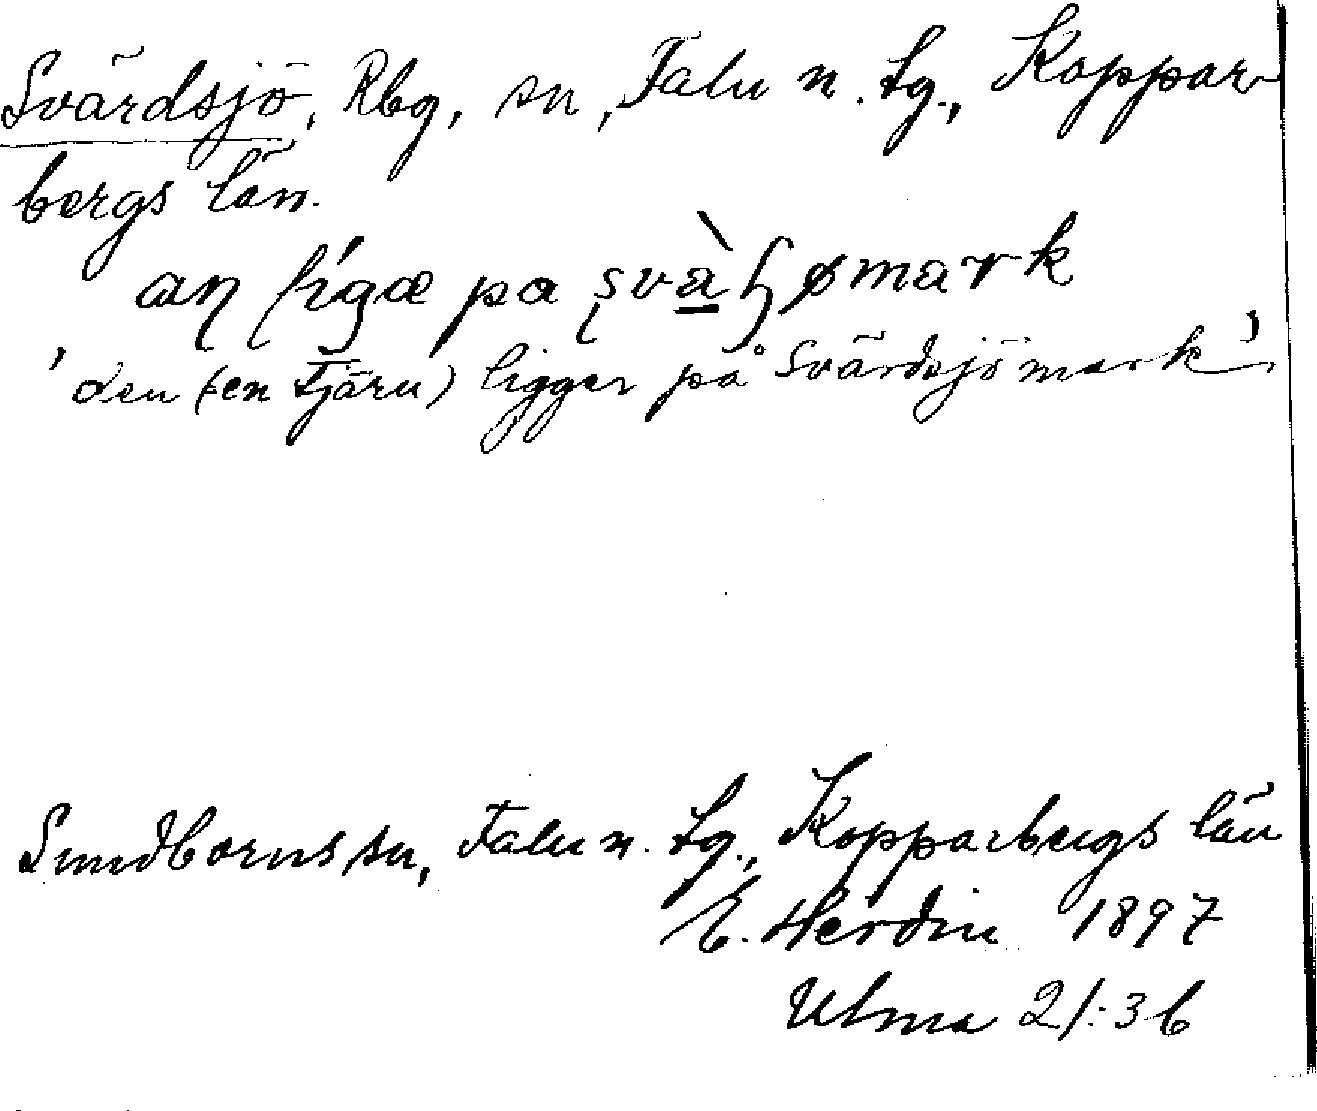 Svärdsjö, Rbg, sn, Falu n. tg., Koppar-
bergs län.
an ligæ pa svàɧømark
'den (en tjärn) ligger på Svärdsjö mark'
Sundborns sn, Falu n. tg., Kopparbergs län
E. Herdin 1897
Ulma 21:36